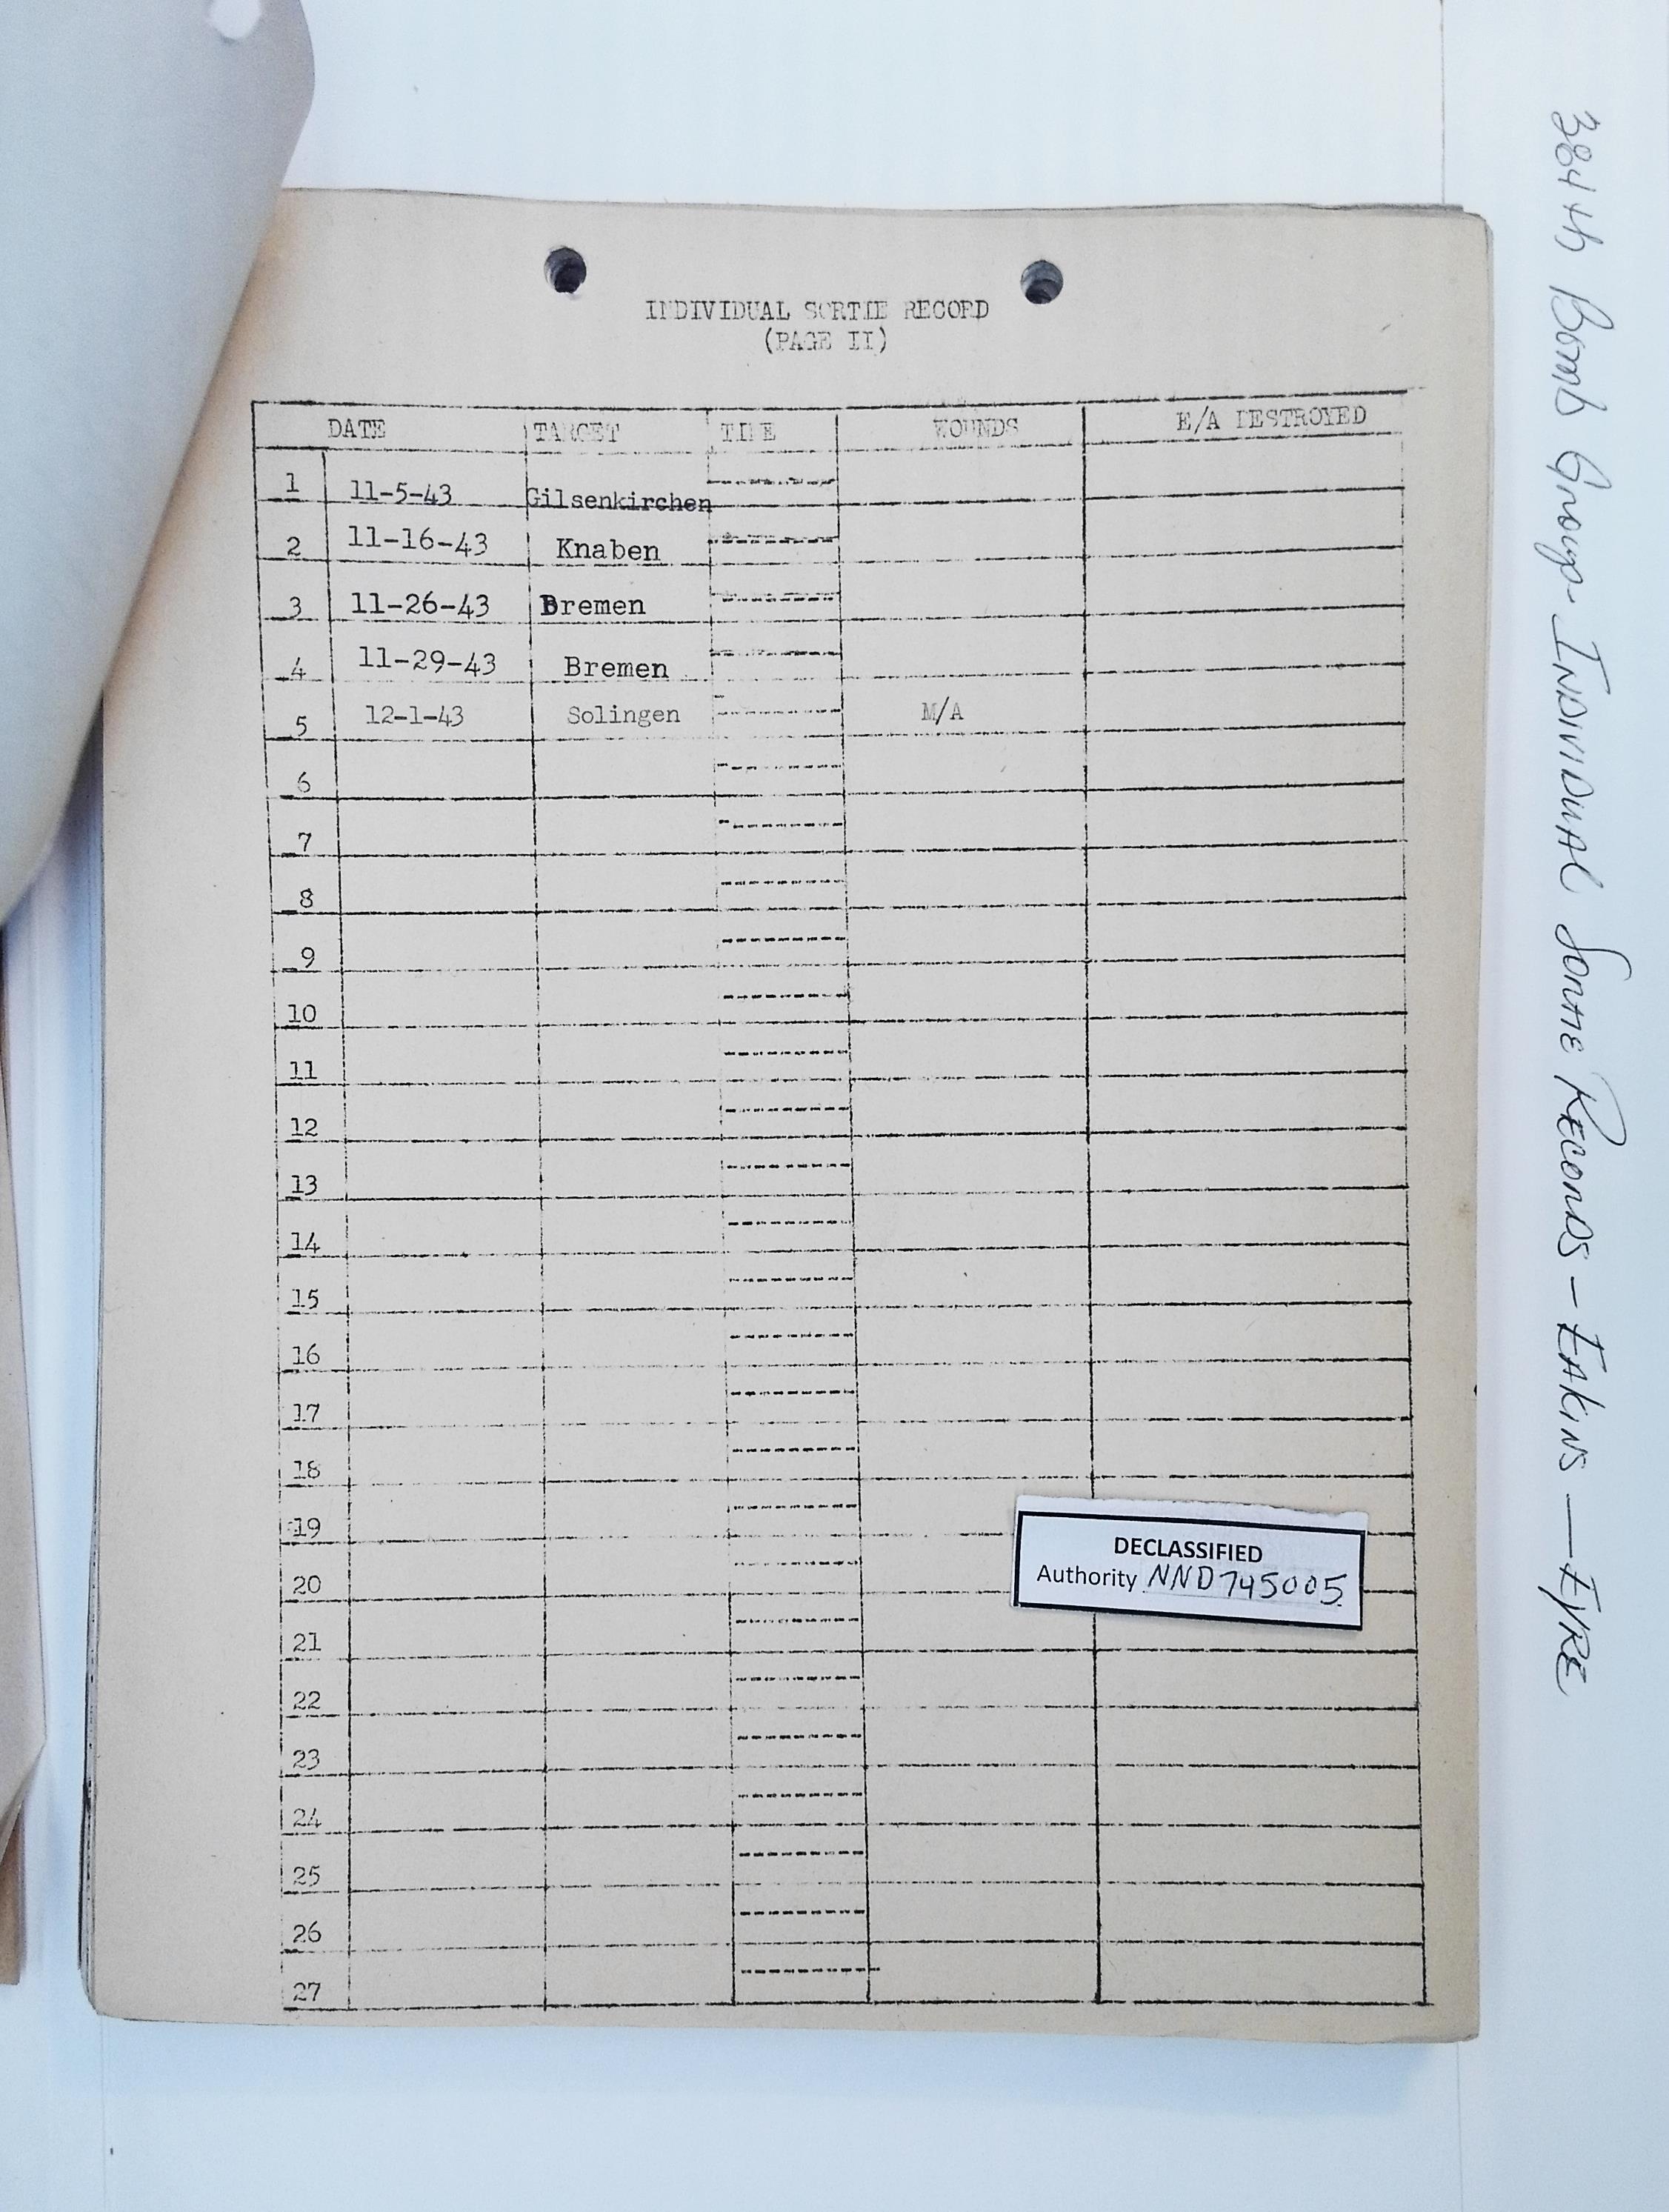 INDIVIDUAL SORTIE RECORD
(PAGE II)
DATE TARGET TIME WOUNDS E/A DESTROYED
1 11-5-43 Gilsenkirchen
2 11-16-43 Knaben
3 11-26-43 Bremen
4 11-29-43 Bremen
5 12-1-43 Solingen M/A
6
7
8
9
10
11
12
13
14
15
16
17
18
19
20
21
22
23
24
25
26
27
DECLASSIFIED
Authority NND745005
384th Bomb Group - INDIVIDUAL Sortie Records - EAKINS - EYRE